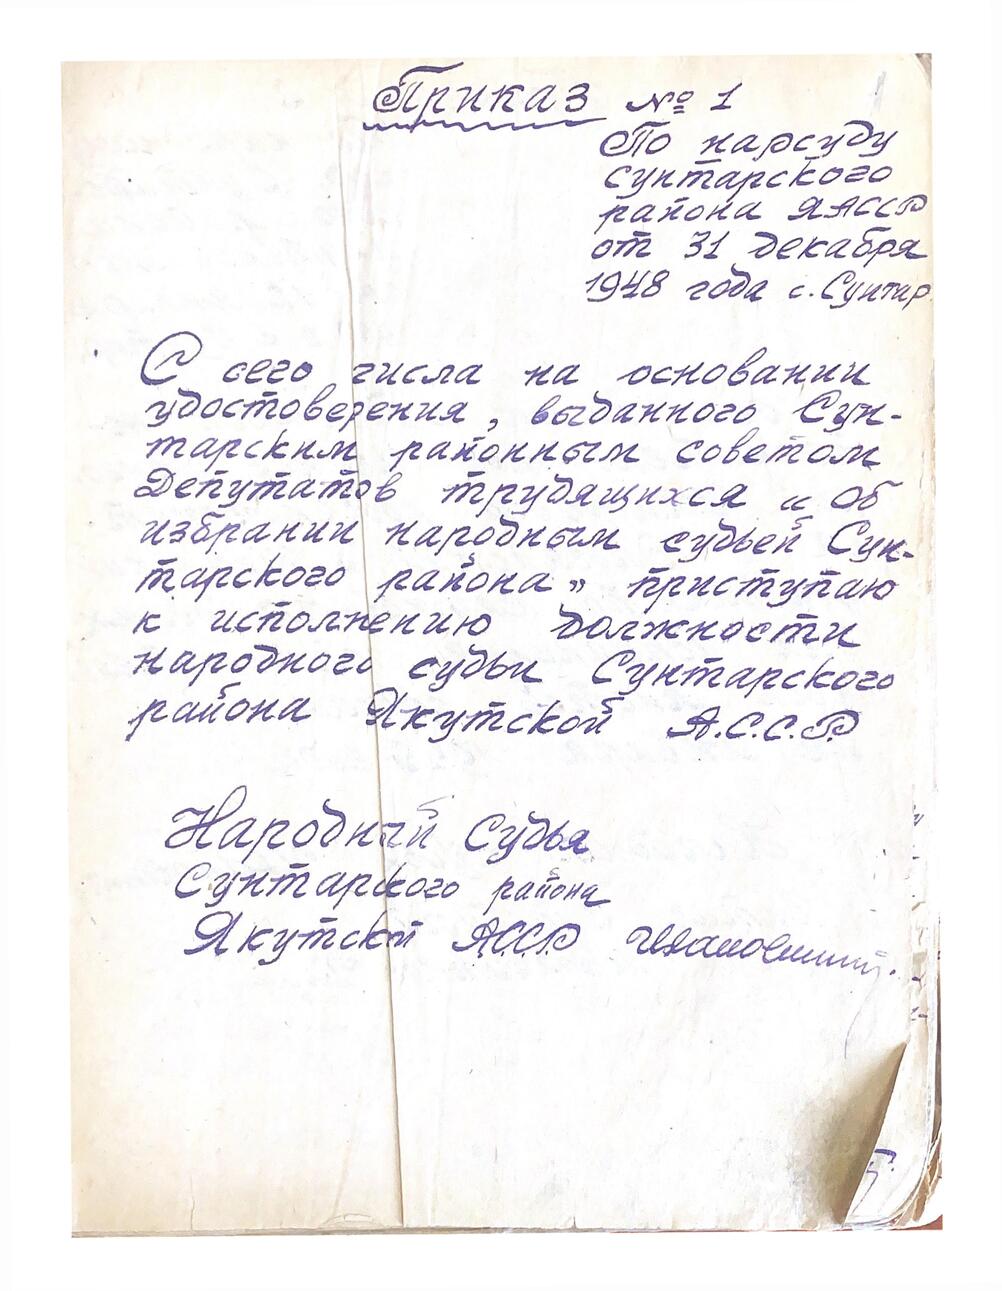 Приказ № 1
По нарсуду
Сунтарского
района ЯАССР
от 31 декабря
1948 года с. Сунтар
С сего числа на основании
удостоверения, выданного Сун-
тарским районным советом
Депутатов трудящихся „Об
избрании народным судьей Сун-
тарского района" приступаю
к исполнению должности
народного судьи Сунтарского
района Якутской А.С.С.Р
Народный Судья
Сунтарского района
Якутской АССР